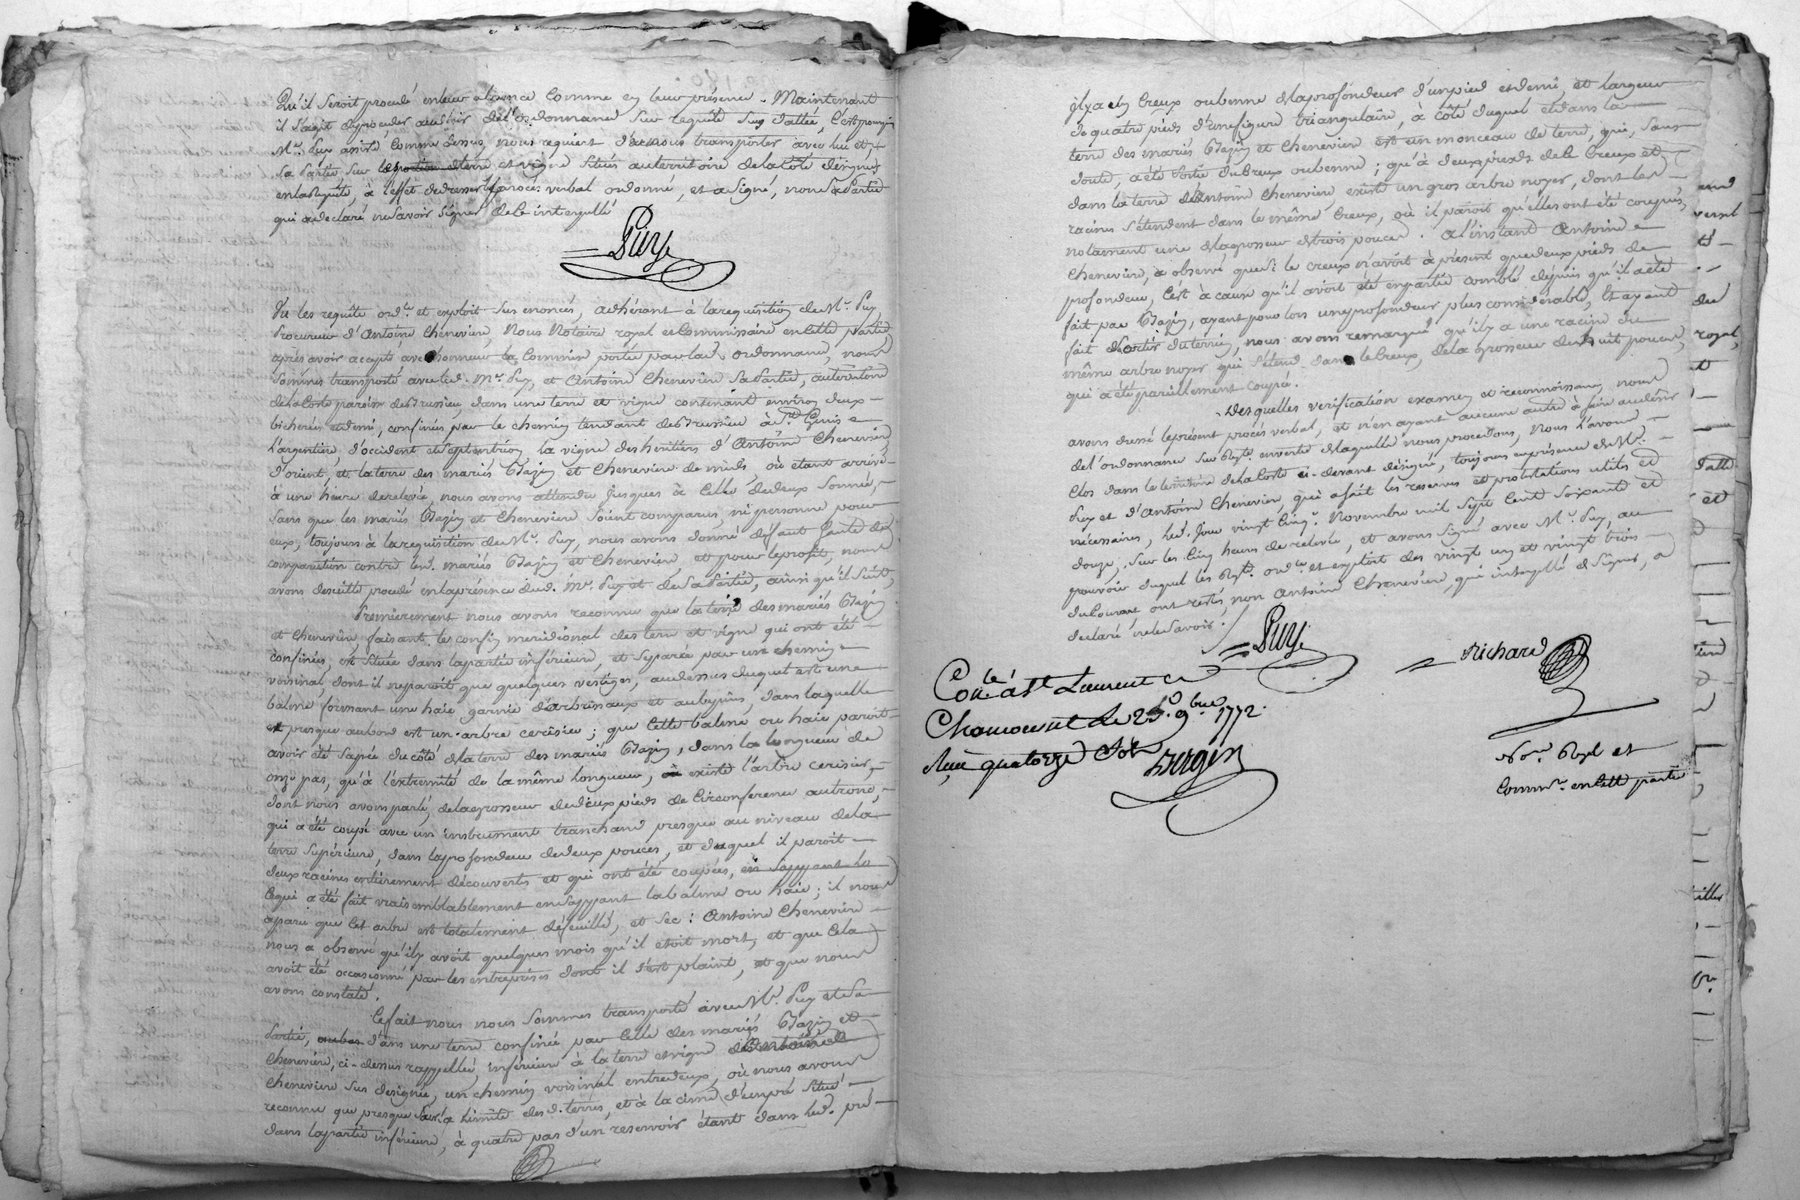 Qu'il seroit procedé en leur absence comme en leur présence. Maintenant
il s'agit de proceder au desir de l'ordonnance sur requête sus dattée, c'est pourquoi
Mr. Puy assisté comme dessus, nous requiert d'à nous transporter avec lui et
sa Partie sur terre et vigne situés au territoire de la Coste désignés
en la Requête, à l'effet de dresser le procés verbal ordonné, et a signé, non sa Partie
qui a declaré ne savoir signer de ce interpellé
Puy
Vu les requête ord.ce et exploit sus enoncés, adhérant à la requisition de Mr. Puy,
Procureur d'Antoine Chenevier, Nous Notaire royal et Commissaire en cette partie
après avoir accepté avec honneur la Commission portée par lad. ordonnance, nous
sommes transporté avec led. Mr. Puy, et Antoine Chenevier sa Partie, au territoire
de la Coste paroisse de Brussieu, dans une terre et vigne contenant environ deux
bicherées et demi, confinés par le chemin tendant de Brussieu à St. Genis
L'argentiere d'occident et septentrion, la vigne des heritiers d'Antoine Chenevier
d'orient, et la terre des mariés Bazin et Chenevier de midi, où etant arrivé
à une heure de relevée, nous avons attendu jusques à celle de deux sonnée,
sans que les mariés Bazin et Chenevier soient comparus, ni personne pour
eux, toujours à la requisition de Mr. Puy, nous avons donné défaut faute de
comparution contre lesd. mariés Bazin et Chenevier, et pour le profit, nous
avons de suitte procedé en la présence dud. Mr. Puy et de sa Partie, ainsi qu'il suit,
Premierement nous avons reconnu que la terre des mariés Bazin
et Chenevier, faisant le confin meridional des terre et vigne qui ont été
confinées, est située dans la partie inférieure, et separée par un chemin
voisinal, dont il ne paroit que quelques vestiges, au dessus duquel est une
balme formant une haie garnie d'arbrisseaux et aubepins, dans laquelle
et presque au bord est un arbre cerisier; que cette balme ou haie paroit
avoir été sapée du côté de la terre des mariés Bazin, dans la longueur de
onze pas, qu'à l'extremité de la même longueur, où existe l'arbre cerisier,
dont nous avons parlé, de la grosseur de deux pieds de circonference au tronc,
qui a été coupé avec un instrument tranchant presque au niveau de la
terre supérieure, dans la profondeur de deux pouces, et duquel il paroit
deux racines entierement découvertes et qui ont été coupées, en sappant la
ce qui a été fait vraisemblablement en sappant la balme ou haie; il nous
a paru que cet arbre est totalement défeuillé, et sec: Antoine Chenevier
nous a observé qu'il y avoit quelques mois qu'il etoit mort, et que cela
avoit été occasionné par les entreprises dont il s'est plaint, et que nous
avons constaté.
Ce fait nous nous sommes transporté avec Mr. Puy et sa
Partie, dans une terre confinée par celle des mariés Bazin et
Chenevier, ci-dessus rappellée inférieure à la terre et vigne
Chenevier sus designée, un chemin voisinal entredeux, où nous avons
reconnu que presque sur la limite desd. terres, et à la cime d'un pré situé
dans la partie inférieure, à quatre pas d'un reservoir étant dans led. pré
il y a un Creux ou benne de la profondeur d'un pied et demi, et largeur
de quatre pieds d'une figure triangulaire, à côté duquel et dans la
terre des mariés Bazin et Chenevier est un monceau de terre, qui, sans
doute, a été sortie du Creux ou benne; qu'à deux pieds de ce Creux et
dans la terre d'Antoine Chenevier existe un gros arbre noyer, dont les
racines s'etendent dans le même Creux, où il paroit qu'elles ont été coupées,
notament une de la grosseur de trois pouces. A l'instant Antoine
Chenevier, a observé que si le creux n'avoit à présent que deux pieds de
profondeur, c'est à cause qu'il avoit été en partie comblé depuis qu'il a été
fait par Bazin, ayant pour lors une profondeur plus considérable, et ayant
fait sortir du terrein, nous avons remarqué qu'il y a une racine du
même arbre noyer qui s'etend dans le Creux, de la grosseur de huit pouces,
qui a été pareillement coupée.
Desquelles verification examen et reconnoissance nous
avons dressé le présent procés verbal, et n'en ayant aucune autre à faire au desir
de l'ordonnance sur Reqte. en vertu de laquelle nous procedons, nous l'avons
clos dans le territoire de la Coste ci-devant désigné, toujours en présence de Mr.
Puy et d'Antoine Chenevier, qui a fait les reserves et protestations utiles et
nécessaires, led. jour vingt cinq Novembre mil sept cent soixante et
douze, sur les cinq heures de relevée, et avons signé avec Mr. Puy, au
pouvoir duquel les Reqte. ord.ce et exploit des vingt un et vingt trois
du courant ont restés, non Antoine Chenevier, qui interpellé de signer, a
declaré ne le savoir.
Puy
Richard
Nore. Royl et
Commre. en cette partie
Conlé à St Laurent de
Chamousset le 25. 9bre 1772.
Reçu quatorze sols